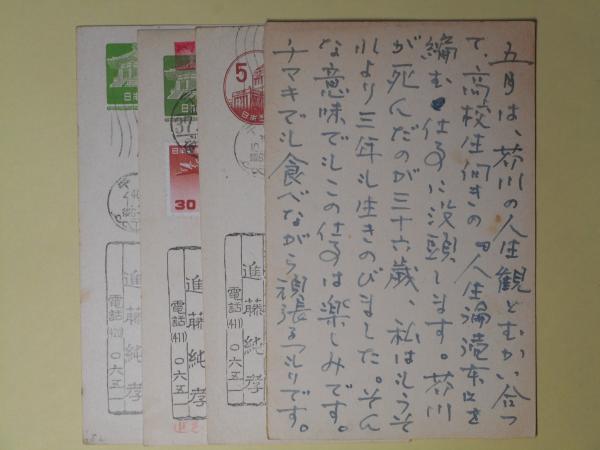 五月は、芥川の人生観とむかい合っ
て、高校生向きの「人生論読本」を
編む仕事に没頭します。芥川
が死んだのが三十六歳、私はもうそ
れより三年も生きのびました。そん
な意味でもこの仕事は楽しみです。
チマキでも食べながら頑張るつもりです。
5
進藤純孝
電話(411)〇六五
30
進藤純孝
電話(411)〇六五
進藤純孝
電話
〇六五